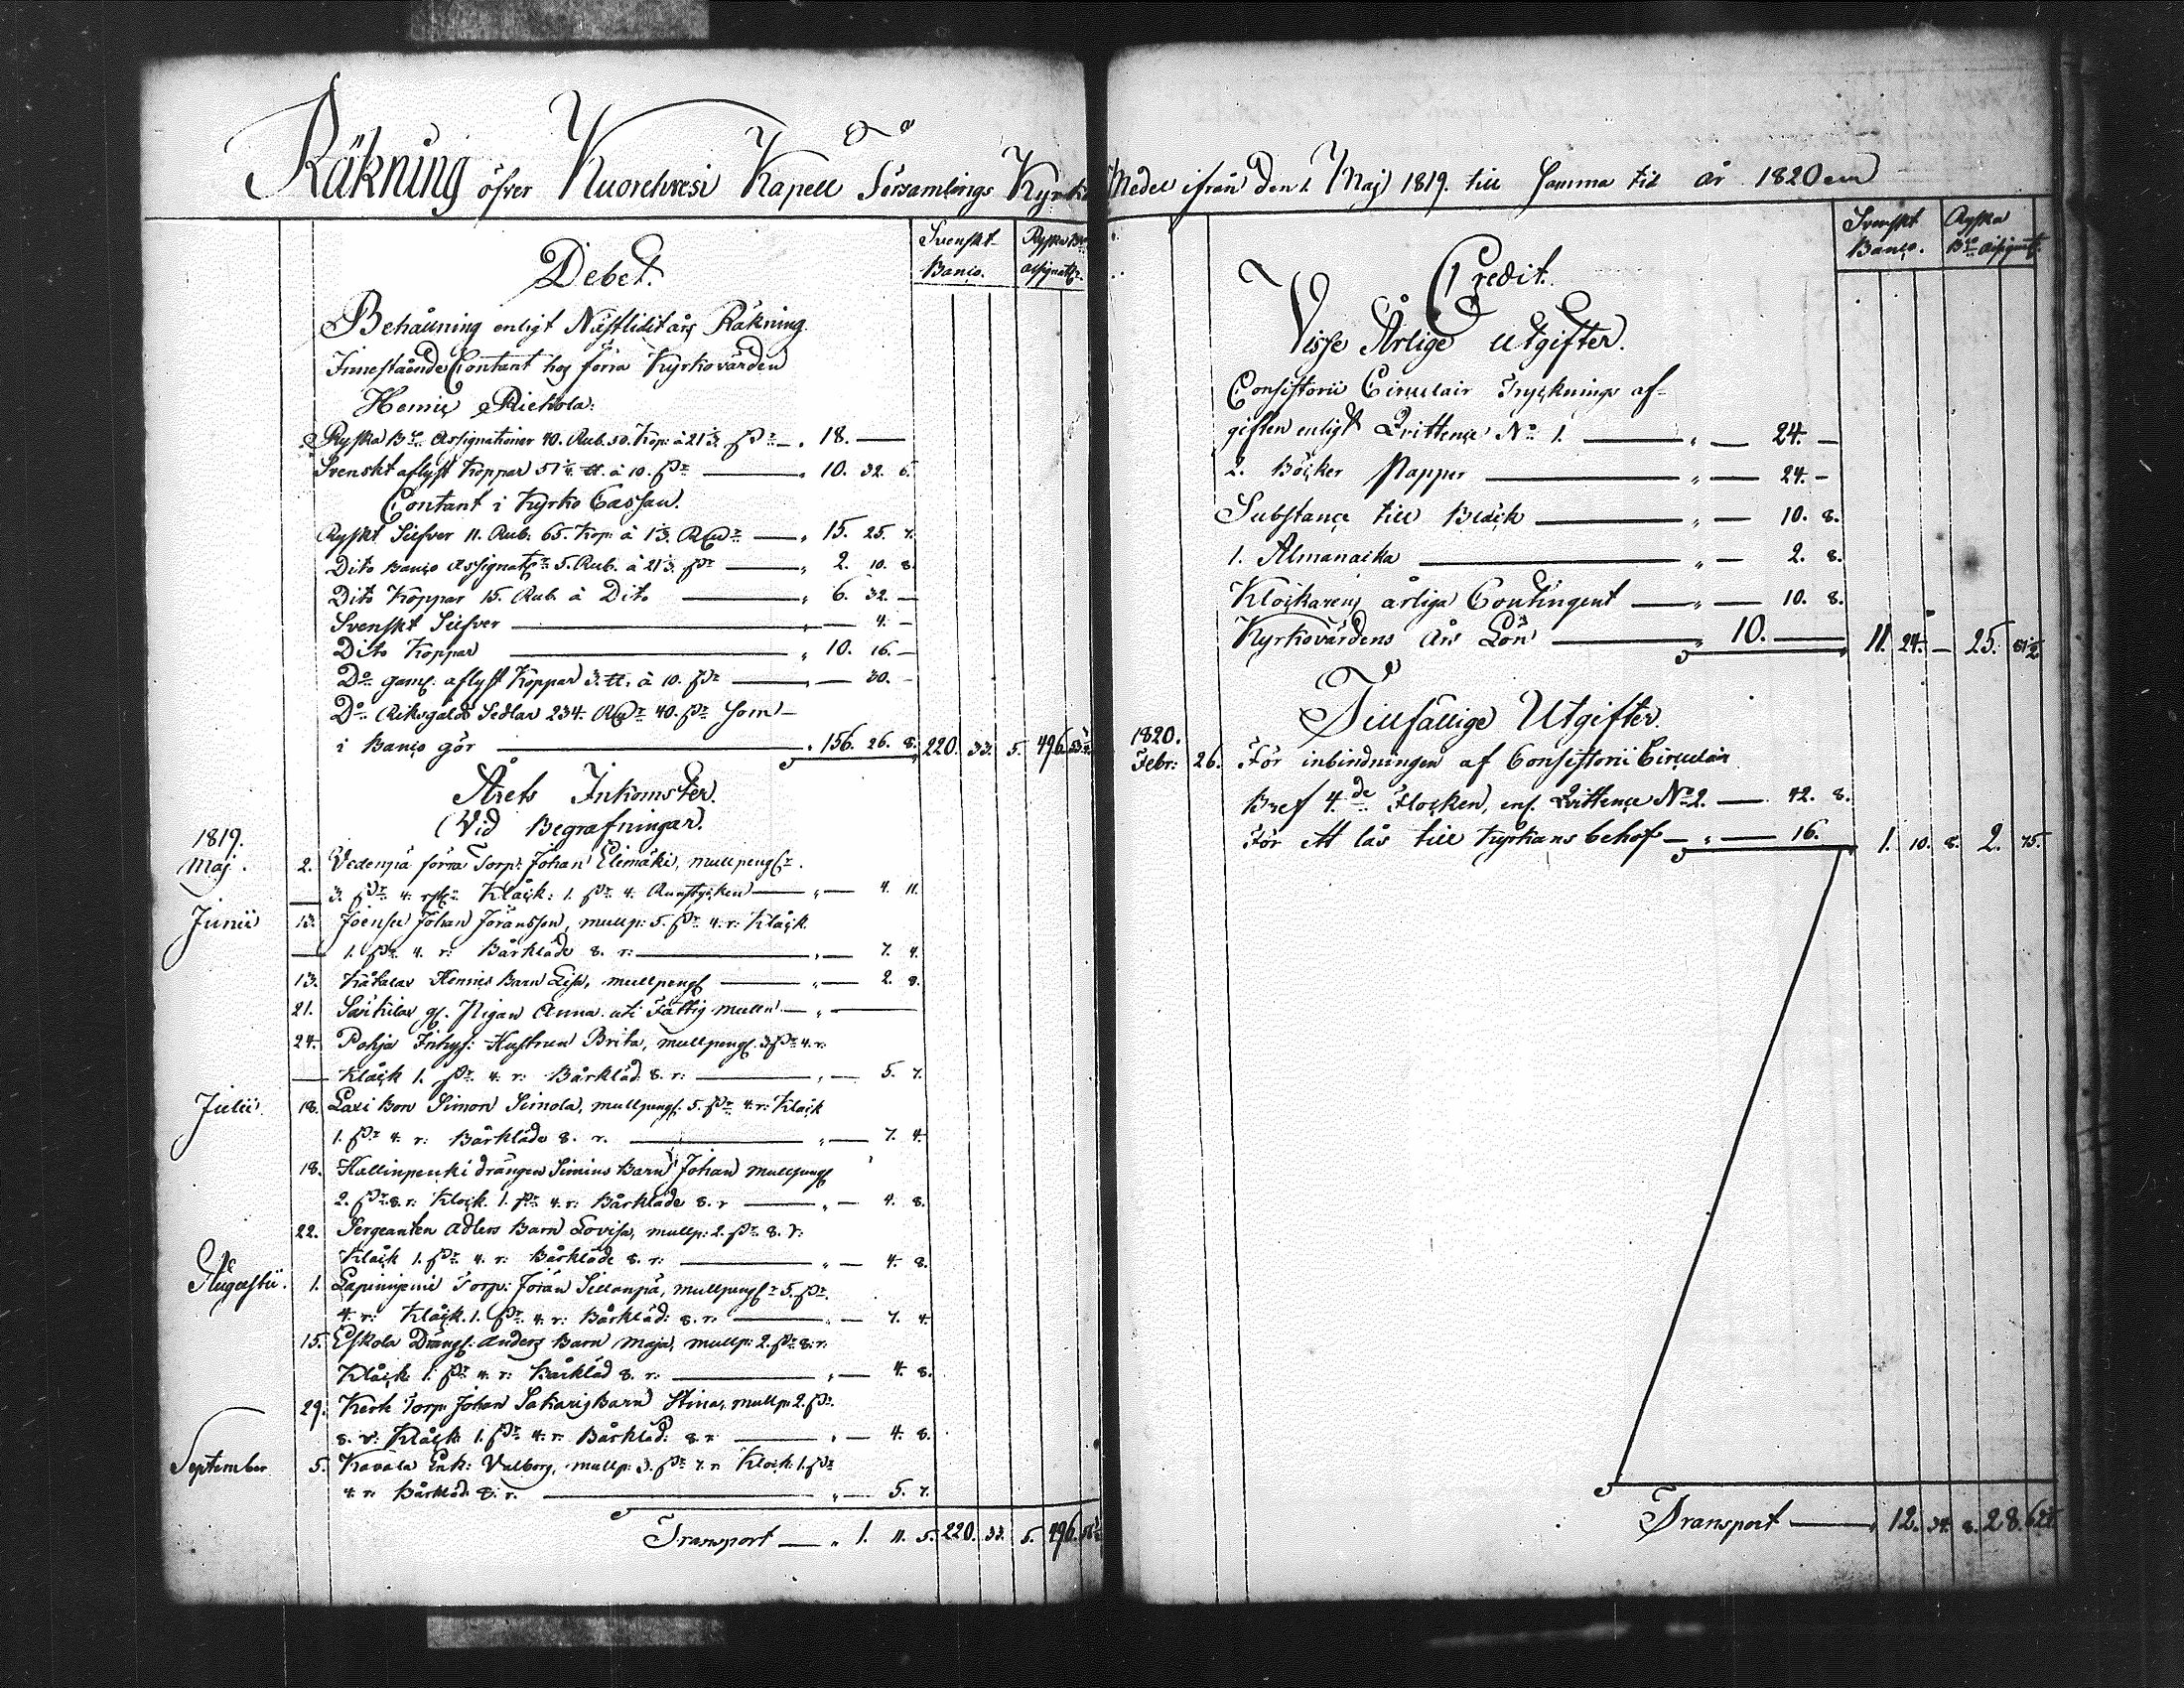 Räkning öfver Kuorehvesi Kapell Församlings Kyrko Medel ifrån den 1 Maj 1819. till samma tid år 1820
Debet.
Svenskt Banco.
Ryska Bco assignatr
Behållning enligt Nästlidit års Räkning.
Innestående Contant hos förra Kyrkovärden
Hemis Riehola:
Ryska Bco Assignationer 40. Rub. 50. Kop: à 21⅓ sr — " 18. —
Svenskt aflyst Koppar 51¼ tt. à 10. sr — " 10. 32. 6.
Contant i Kyrko Cassan.
Ryskt Silfver 11. Rub. 65. Kop. à 1⅓. Rdr — " 15. 25. 7.
Dito Banco Assignatr 5. Rub. à 21⅓. sr — " 2. 10. 8.
Dito Koppar 15. Rub. à Dito — " 6. 32. —
Svenskt Silfver — " — 4. —
Dito Koppar — " 10. 16. —
Do gaml. aflyst Koppar 3. tt. à 10. sr — " — 30. —
Do Riksgälds Sedlar 234. Rdr 40. sr som
i Banco gör — " 156. 26. 8. 220. 33. 5. 496.
Årets Inkomster.
Vid Begrafningar.
1819.
Maj. 2. Vedenpä förra Torp: Johan Elimäki, mullpengr
3. sr 4. rst. Klåck: 1. sr 4. Runstycken — " — 4. 11.
Junii 13. Joensu Johan Joransson, mullp: 5. sr 4. r: Klåck
1. sr 4. r: Bårkläde 8. r: — " — 7. 4.
13. Kåkalas Hennes Barn Lisa, mullpeng — " — 2. 8.
21. Särkilax gl. Pigan Anna uti Fattig mulln — " —
24. Pohja Inhys: Hustrun Brita, mullpeng. 3 sr 4. r:
Klåck 1. sr 4. r: Bårkläd. 8. r: — " — 5. 7.
Julii 18. Laxi Bon Simon Simola, mullpeng: 5. sr 4. r: Klåck
1. sr 4. r: Bårkläde 8. r. — " — 7. 4.
18. Hallinpenki drängen Simins Barn Johan mullpeng
2. sr 8. r: Klock. 1. sr 4. r: Bårkläde 8. r — " — 4. 8.
22. Sergeanten Adlers Barn Lovisa, mullp: 2. sr 8. r:
Klåck 1. sr 4. r: Bårkläde 8. r: — " — 4. 8.
Augusti. 1. Lapinniemi Torp: Jöran Sillanpä, mullpengr 5. sr
4. r: Klåck. 1. sr 4. r: Bårkläd: 8. r. — " — 7. 4.
15. Eskola Dräng: Anders Barn Maja, mullp: 2. sr 8. r:
Klåck 1. sr 4. r: Bårkläd 8. r: — " — 4. 8.
29. Kerte Torp: Johan Sakaris Barn Stina, mullp: 2. sr
8. r: Klåck 1. sr 4. r: Bårkläd: 8. r — " — 4. 8.
September 5. Kavala Enk: Valborg, mullp: 3. sr 7. r. Klock: 1. sr
4. r: Bårkläd. 8. r. — " — 5. 7.
Transport — " 1. 11. 5. 220. 33. 5. 496.
Svenskt Banco.
Ryska Bco assignatr
Credit.
Visse Årlige Utgifter.
Consistorii Circulair Trycknings af-
giften enligt Qvittence No 1. — " — 24. —
2. Böcker Papper — " — 24. —
Substance till Bläck — " — 10. 8.
1. Almanacka — " — 2. 8.
Klockarens årliga Contingent — " — 10. 8.
Kyrkovärdens års Lön — " 10. — 11. 24. — 25. 87½
Tillfällige Utgifter.
1820.
Febr: 26. För inbindningen af Consistorii Circulair
Bref 4.de Flocken, enl. Qvittence No 2. — 42. 8.
För ett lås till Kyrkans behof — " — 16. 1. 10. 8. 2. 75.
Transport — " 12. 34. 8. 28. 62½